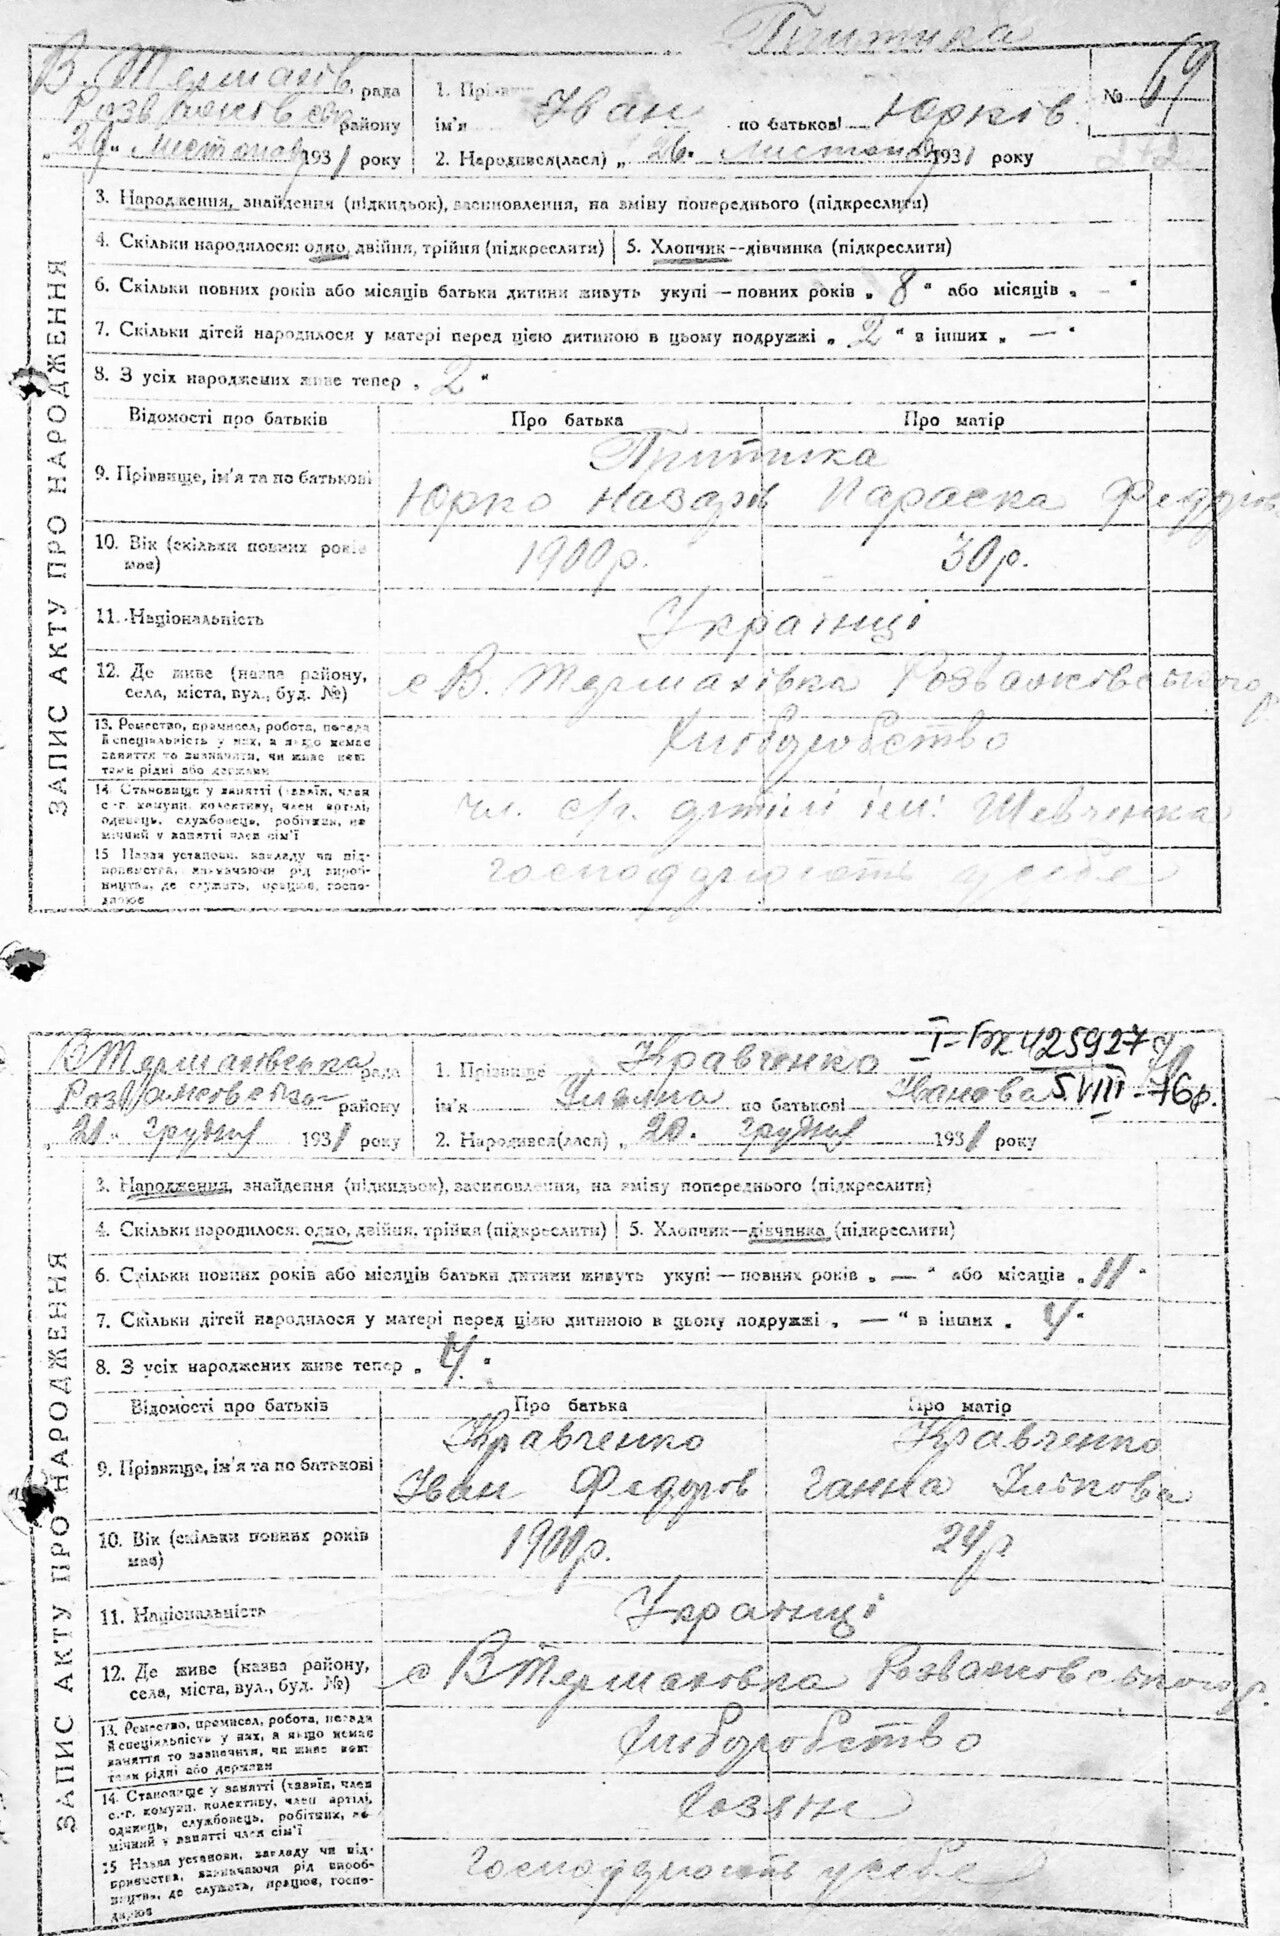 Притика
В. Термахів. рада
Розважівськ району
„29“ Листопаду 1931 року
1. Прізвище
ім'я Іван по батькові Юрків
№ 69
2. Народився(лася) „26. листопаду 1931 року
ЗАПИС АКТУ ПРО НАРОДЖЕННЯ
3. Народження, знайдення (підкидьок), засиновлення, на зміну попереднього (підкреслити)
4. Скільки народилося: одно, двійня, трійня (підкреслити)
5. Хлопчик—дівчинка (підкреслити)
6. Скільки повних років або місяців батьки дитини живуть укупі — повних років „ 8 “ або місяців „ — “
7. Скільки дітей народилося у матері перед цією дитиною в цьому подружжі „ 2 “ в інших „ — “
8. З усіх народжених живе тепер „ 2 “
Відомості про батьків
Про батька
Про матір
9. Прізвище, ім'я та по батькові
Притика
Юрко Назарів Параска Федоров
10. Вік (скільки повних років має)
1900р.
30р.
11. Національність
Українці
12. Де живе (назва району, села, міста, вул., буд. №)
с В. Термахівка Розважівського р
13. Ремество, промисел, робота, посада й спеціяльність у них, а якщо немає заняття то зазначити, чи живе коштами рідні або держави
Хліборобство
14. Становище у занятті (хазяїн, член с.-г. комуни, колективу, член артілі, одинець, службовець, робітник, помічний у занятті член сім'ї
чл. с/г. артілі ім. Шевченка
15 Назва установи, закладу чи підприємства, зазначаючи рід виробництва, де служать, працює, господарює
господарюють у себе
І-БК 425927
5 VIII - 76р.
В Термахівська рада
Розважівсько- району
„21“ грудня 1931 року
1. Прізвище Кравченко
ім'я Уляна по батькові Іванова
2. Народився(лася) „ 20. грудня 1931 року
ЗАПИС АКТУ ПРО НАРОДЖЕННЯ
3. Народження, знайдення (підкидьок), засиновлення, на зміну попереднього (підкреслити)
4. Скільки народилося: одно, двійня, трійня (підкреслити)
5. Хлопчик—дівчинка (підкреслити)
6. Скільки повних років або місяців батьки дитини живуть укупі — повних років „ — “ або місяців „ 11 “
7. Скільки дітей народилося у матері перед цією дитиною в цьому подружжі „ — “ в інших „ 4 “
8. З усіх народжених живе тепер „ 4 “
Відомості про батьків
Про батька
Про матір
9. Прізвище, ім'я та по батькові
Кравченко Кравченко
Іван Федоров Ганна Ількова
10. Вік (скільки повних років має)
1900р.
24р
11. Національність
Українці
12. Де живе (назва району, села, міста, вул., буд. №)
с В Термаховка Розважовського р.
13. Ремество, промисел, робота, посада й спеціяльність у них, а якщо немає заняття то зазначити, чи живе коштами рідні або держави
Хліборобство
14. Становище у занятті (хазяїн, член с.-г. комуни, колективу, член артілі, одинець, службовець, робітник, помічний у занятті член сім'ї
Хозяїн
15 Назва установи, закладу чи підприємства, зазначаючи рід виробництва, де служать, працює, господарює
господарюють у себе